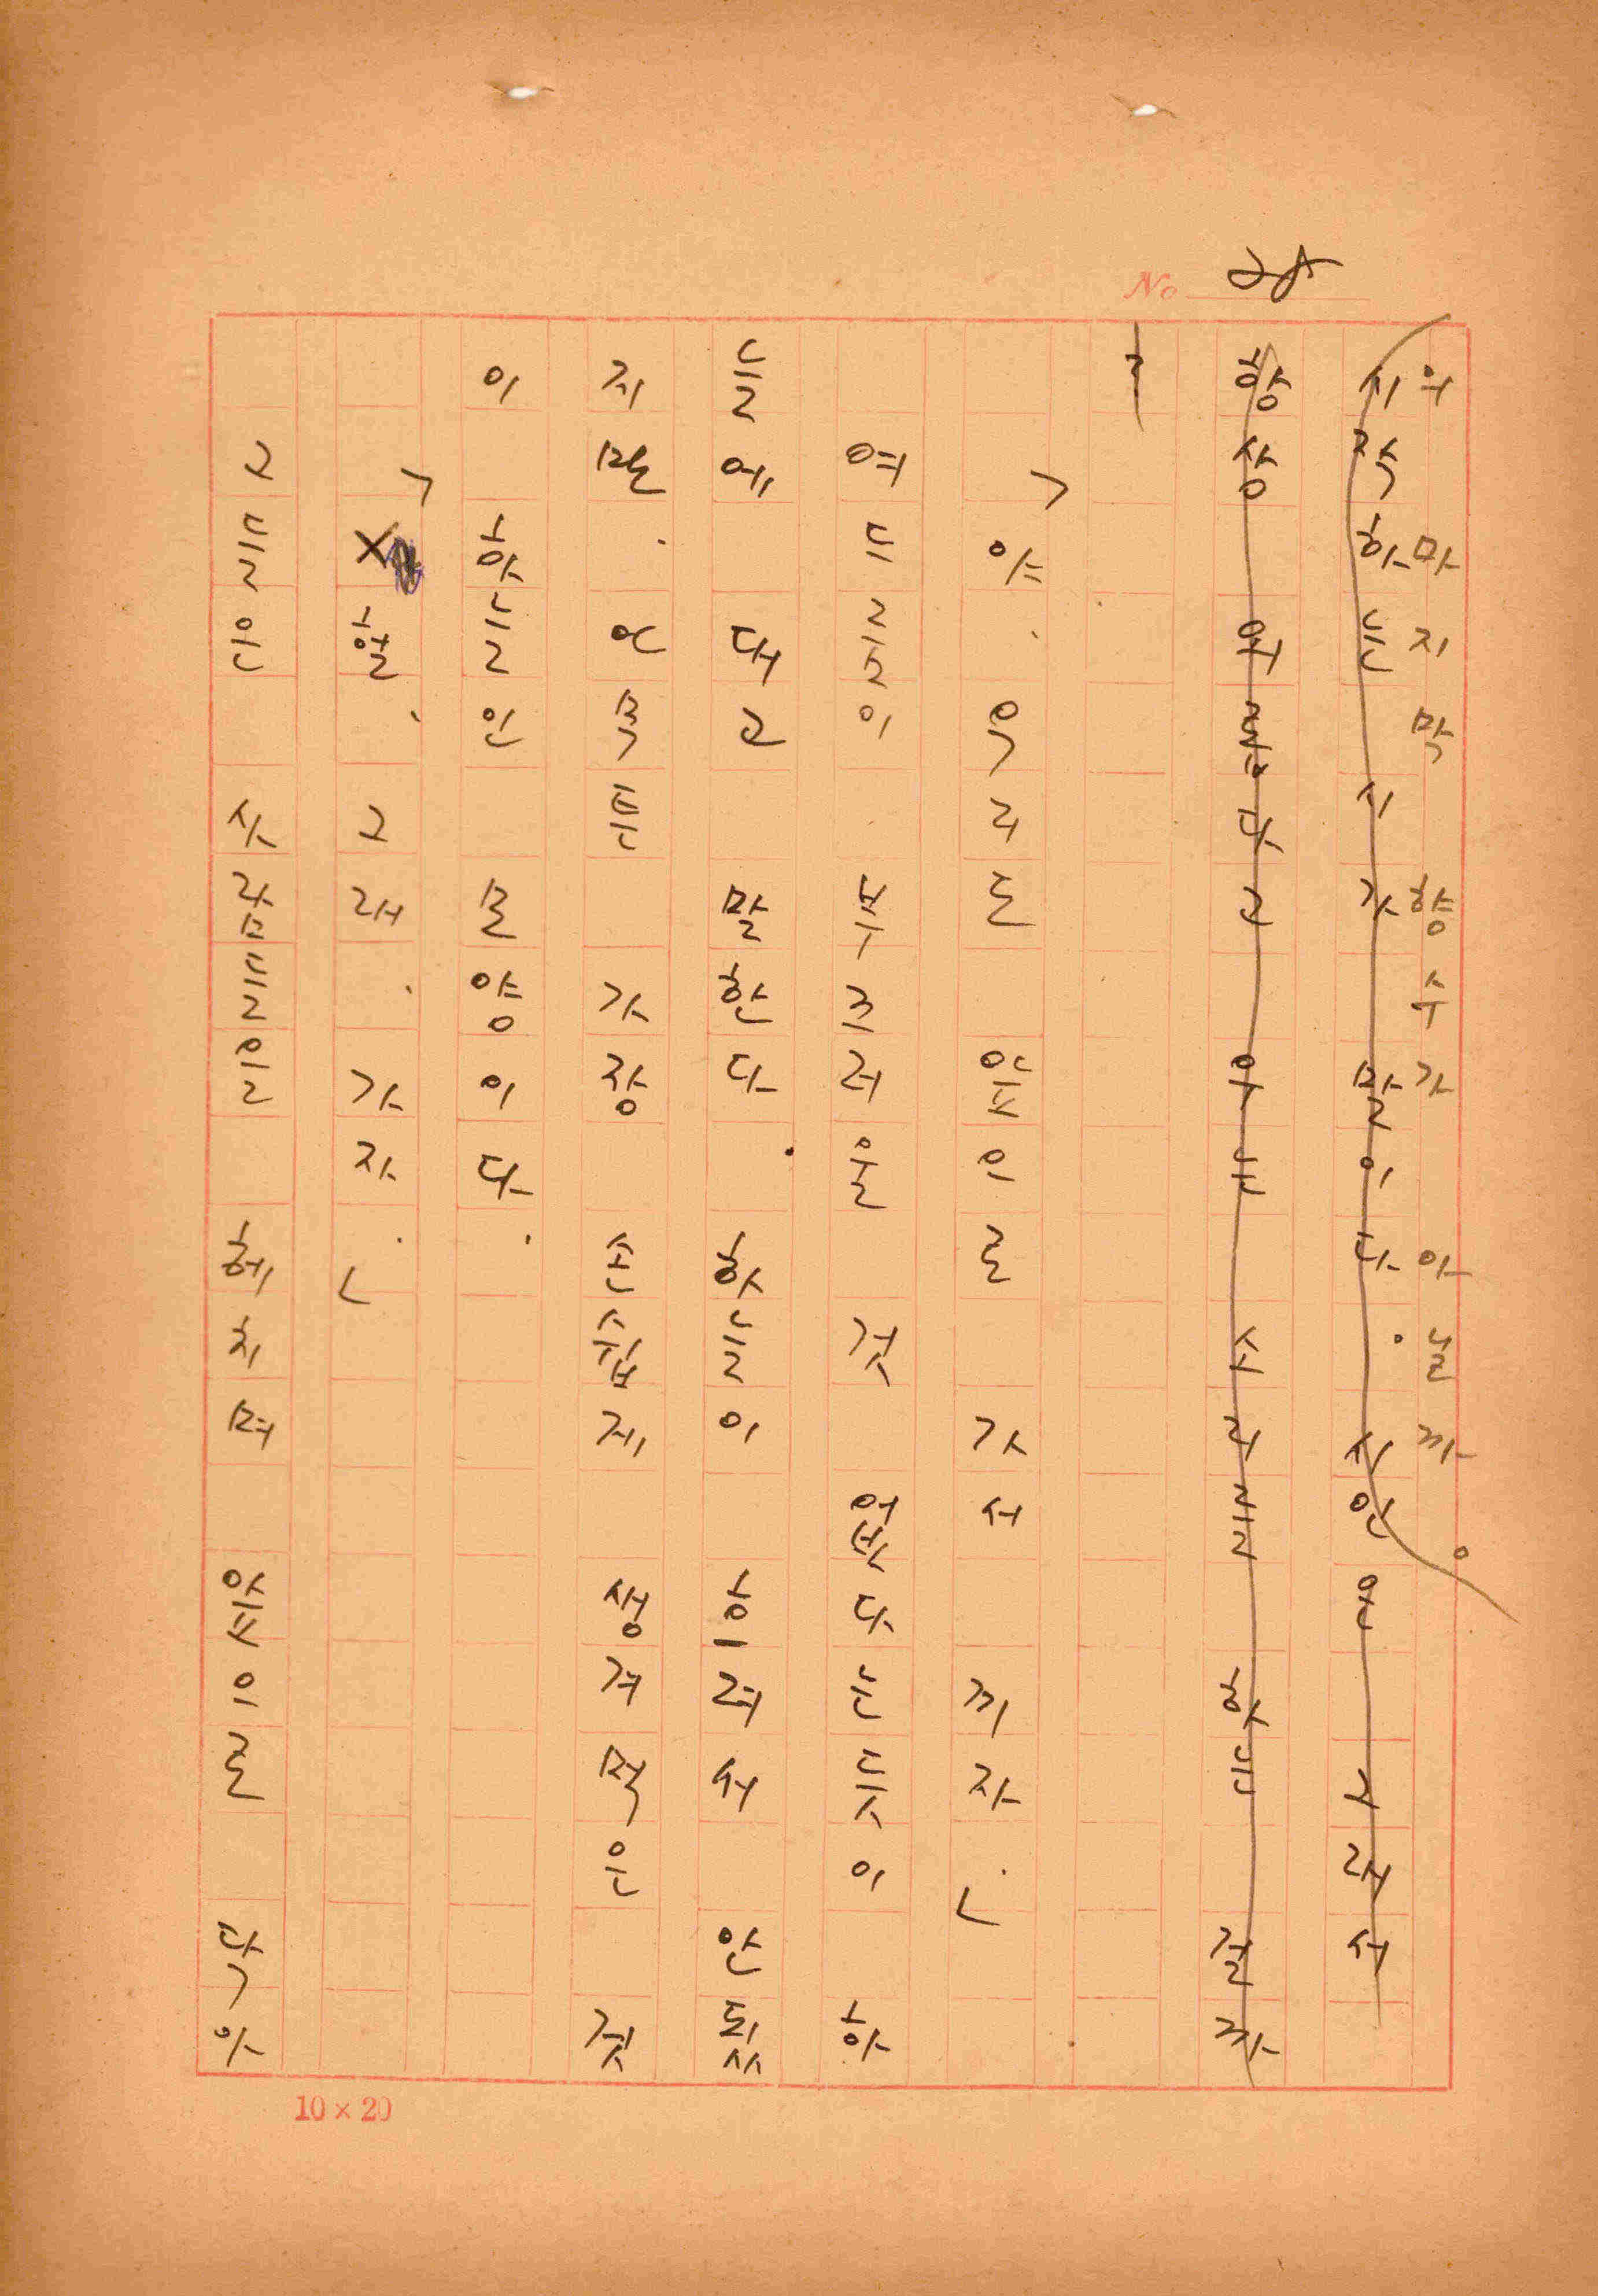 No
의 마지막 향수가 아닐까.
시작하는 시각 말이다. 시인은 그래서
항상 걸까
「야. 우리는 앞으로 가서 끼자.」
여드름이 부끄러울 것 없다는 듯이 하
늘에 대고 말한다. 하늘이 흐려서 안됐
지만, 가장 손쉽게 생겨먹은 것
이 하늘인 모양이다.
「X할, 그래, 가자.」
그들은 사람들을 헤치며 앞으로 닥아
10×20